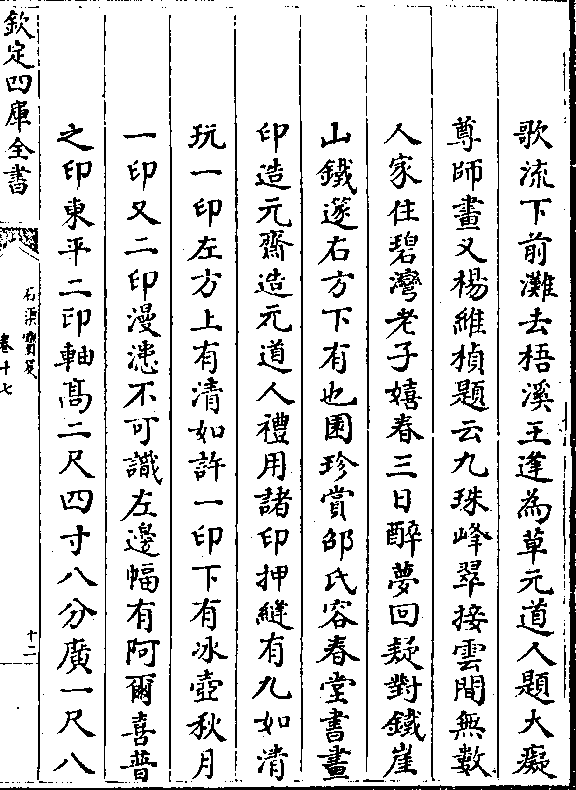 歌流下前灘去梧溪王逢為草元道人題大癡
尊師畫又楊維楨題云九珠峰翠接雲間無數
人家住碧灣老子嬉春三日醉夢回疑對鐵崖
山鐵邃右方下有也園珍賞邵氏容春堂書畫
印造元齋造元道人禮用諸印押縫有九如清
玩一印左方上有清如許一印下有冰壺秋月
一印又二印漫漶不可識左邊幅有阿爾喜普
之印東平二印軸髙二尺四寸八分廣一尺八
欽定四庫全書
石渠寶笈
卷十七
十二